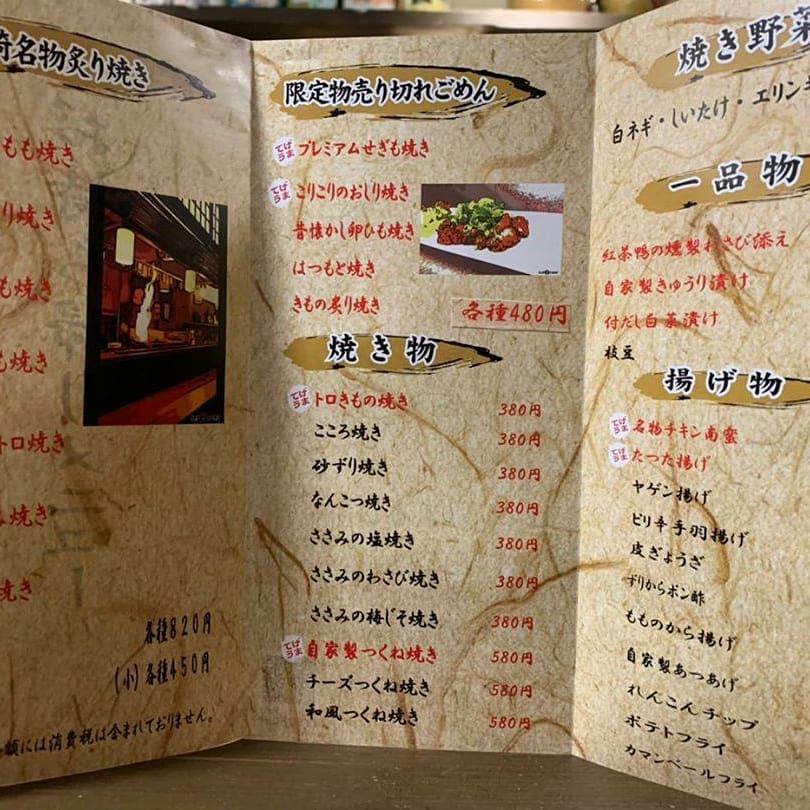 崎名物炙り焼き
もも焼き
り焼き
も焼き
も焼き
トロ焼き
焼き
焼き
各種820円
(小)各種450円
額には消費税は含まれておりません。
限定物売り切れごめん
てげうま プレミアムせぎも焼き
てげうま こりこりのおしり焼き
昔懐かし卵ひも焼き
はつもと焼き
きもの炙り焼き
各種480円
焼き物
てげうま トロきもの焼き 380円
こころ焼き 380円
砂ずり焼き 380円
なんこつ焼き 380円
ささみの塩焼き 380円
ささみのわさび焼き 380円
ささみの梅じそ焼き 380円
てげうま 自家製つくね焼き 580円
チーズつくね焼き 580円
和風つくね焼き 580円
焼き野菜
白ネギ・しいたけ・エリンギ
一品物
紅茶鴨の燻製わさび添え
自家製きゅうり漬け
付だし白菜漬け
枝豆
揚げ物
てげうま 名物チキン南蛮
てげうま たつた揚げ
ヤゲン揚げ
ピリ辛手羽揚げ
皮ぎょうざ
ずりからポン酢
もものから揚げ
自家製あつあげ
れんこんチップ
ポテトフライ
カマンベールフライ